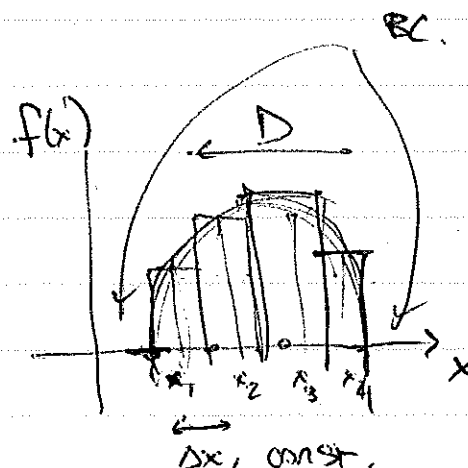 BC.
f(x)
D
x
x₁ x₂ x₃ x₄
Δx, const.